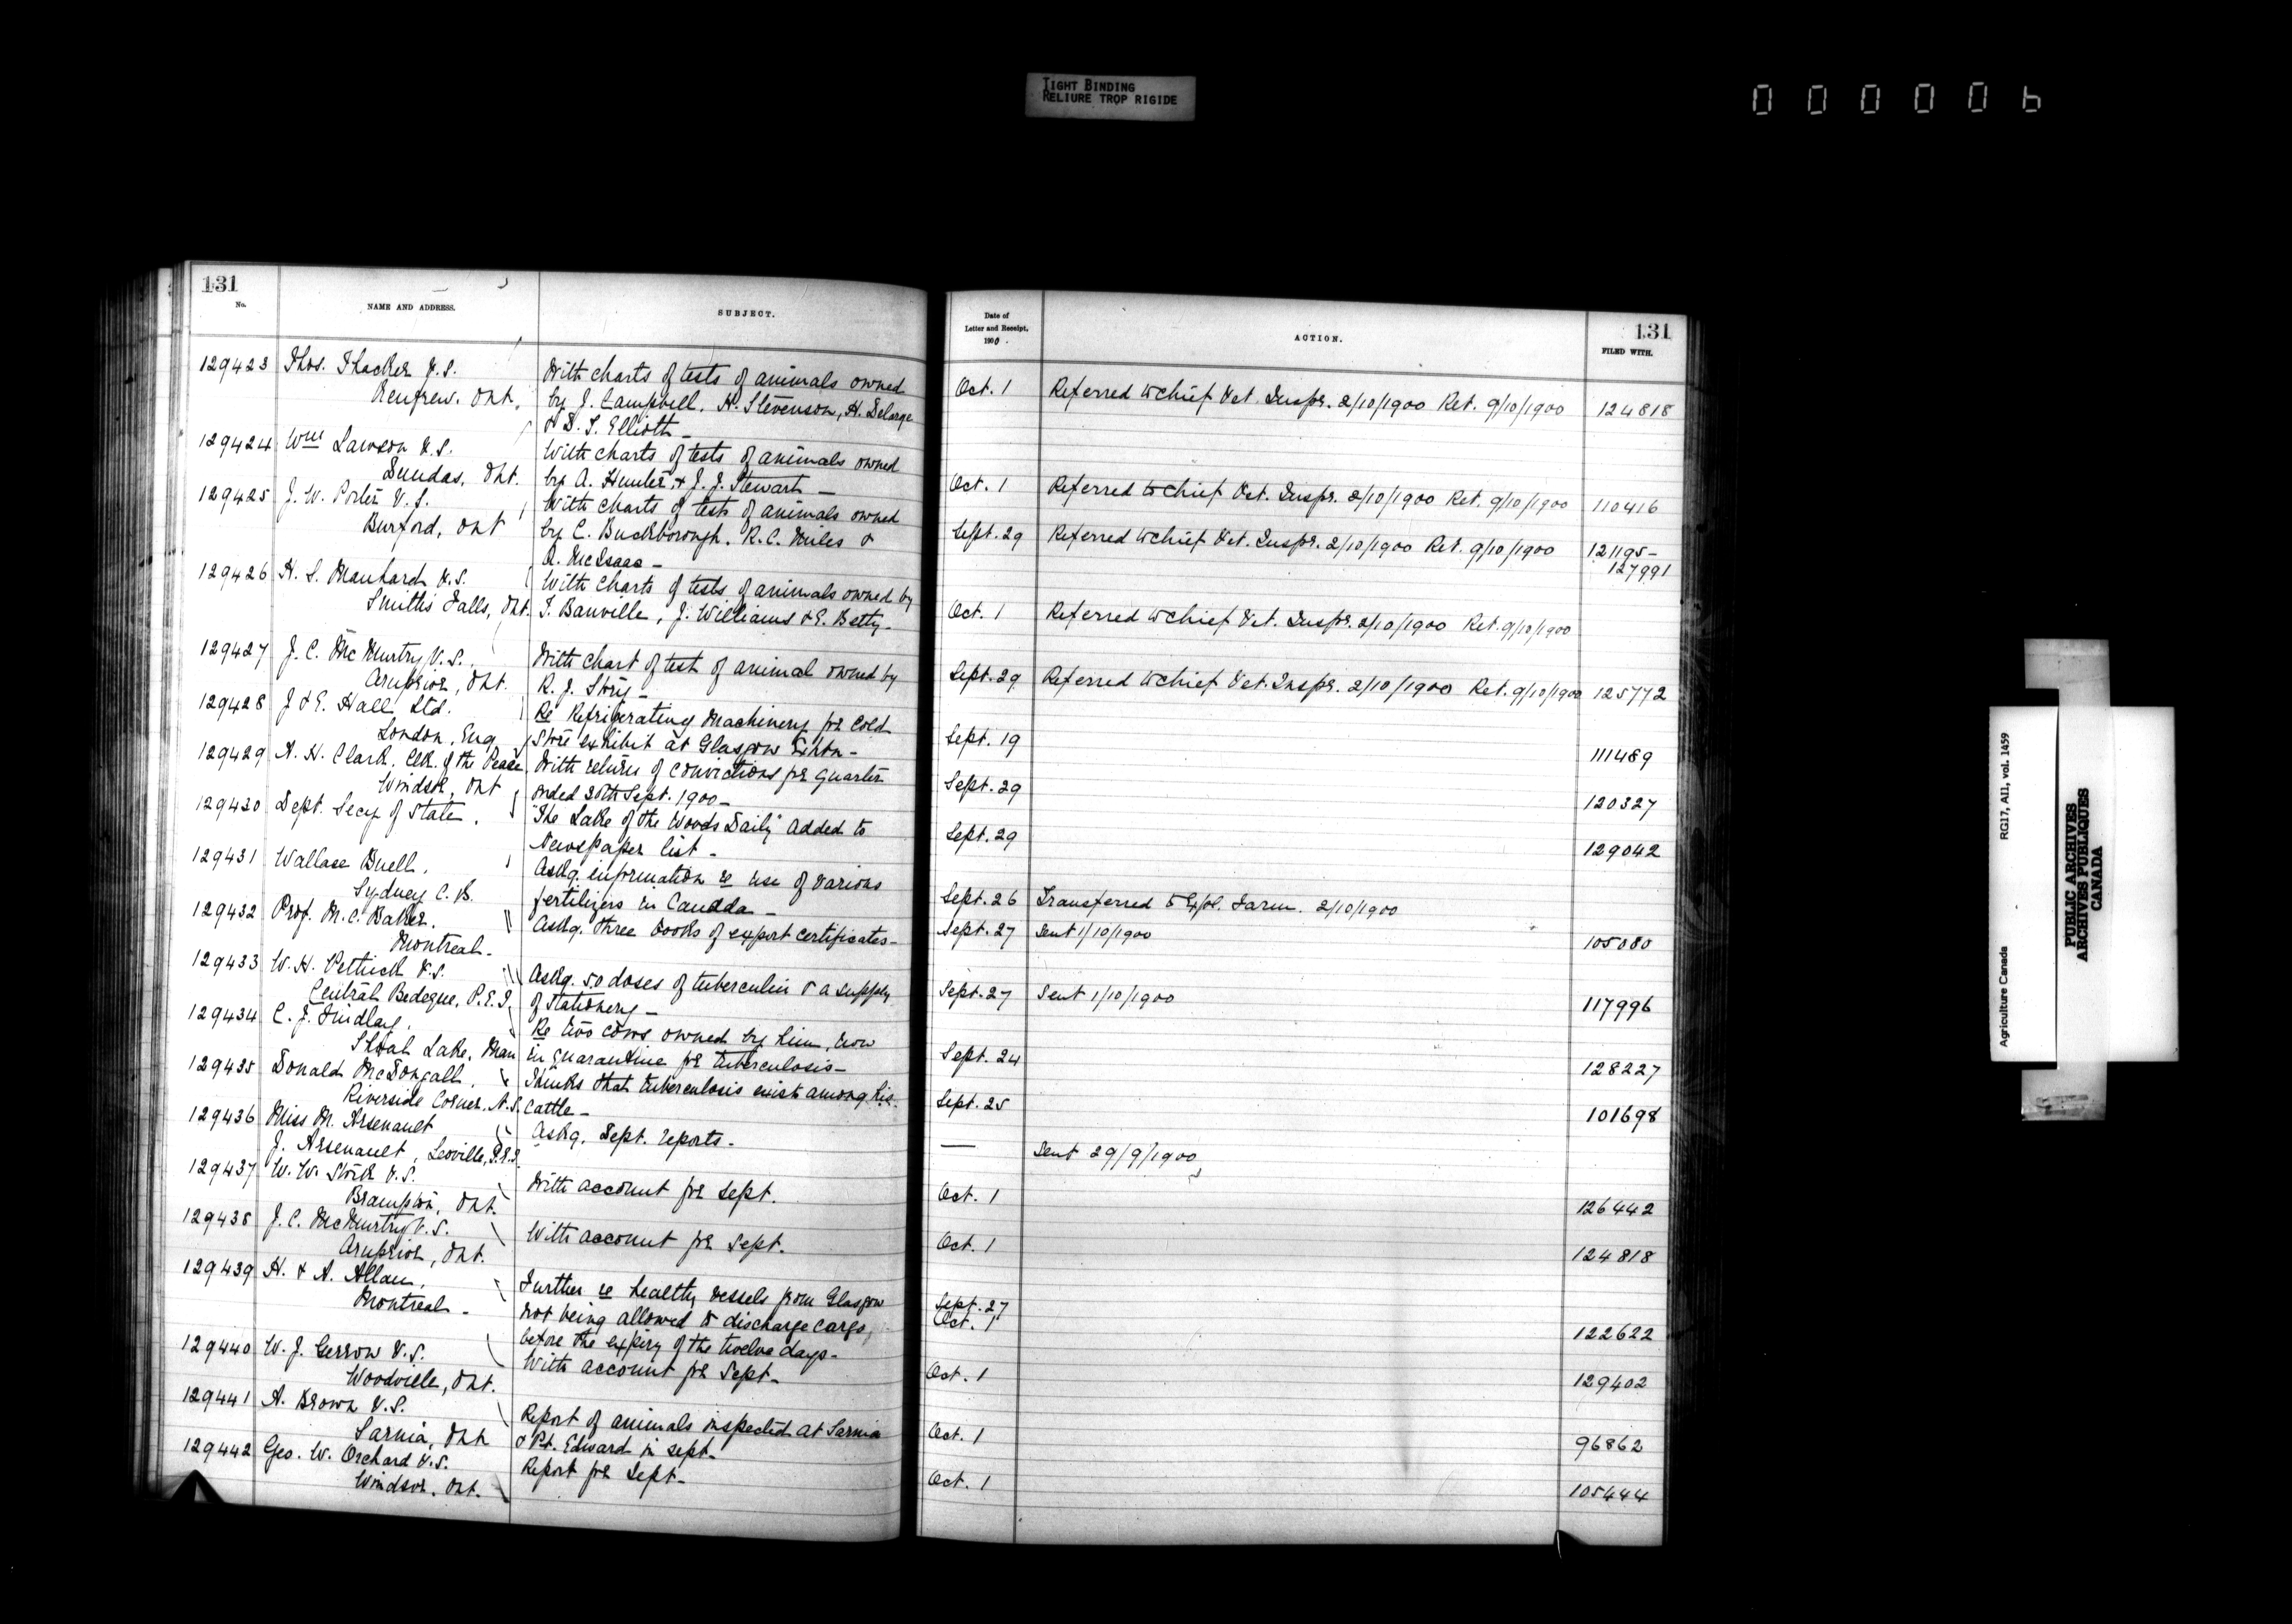 TIGHT BINDING
RELIURE TROP RIGIDE
000006
131
No.
NAME AND ADDRESS.
SUBJECT.
129423 Thos. Thacker V.S.
Renfrew. Ont.
With charts of tests of animals owned
by J. Campbell, H. Stevenson, H. Delarge
& D. S. Elliott -
129424 Wm Lawson V.S.
Dundas, Ont.
With charts of tests of animals owned
by A. Hunter & J. J. Stewart -
129425 J. W. Porter V.S.
Burford, Ont
With charts of tests of animals owned
by C. Buckborough. R.C. Miles &
A. McIsaac -
129426 H. S. Manhard V.S.
Smiths Falls, Ont.
With charts of tests of animals owned by
T. Banville, J. Williams & E. Betty -
129427 J. C. McMurtry V.S.
Arnprior, Ont.
With chart of test of animal owned by
R. J. Story -
129428 J & E. Hall Ltd.
London, Eng
Re Refrigerating Machinery for Cold
Store exhibit at Glasgow Exhbn -
129429 A. H. Clark, Clk. of the Peace
Windsor, Ont
With return of convictions for quarter
ended 30th Sept. 1900 -
129430 Dept. Secy of State.
"The Lake of the Woods Daily" added to
Newspaper list -
129431 Wallace Buell.
Sydney C. B.
Askg. information re use of various
fertilizers in Canada -
129432 Prof. M. C. Baker.
Montreal -
Askg. three books of export certificates -
129433 W. H. Pethick V.S.
Central Bedeque, P.E.I.
Askg. 50 doses of tuberculin & a supply
of stationery -
129434 C. J. Findlay.
Shoal Lake, Man
Re two cows owned by him, now
in quarantine for tuberculosis -
129435 Donald McDougall.
Riverside Corner, N.S.
Thinks that tuberculosis exists among his
cattle -
129436 Miss M. Arsenault
J. Arsenault, Leoville, P.E.I.
Askg. Dept. reports -
129437 W. W. Stork V.S.
Brampton, Ont.
With account for Sept.
129438 J. C. McMurtry V.S.
Arnprior, Ont.
With account for Sept.
129439 H. & A. Allan.
Montreal -
Further re healthy vessels from Glasgow
not being allowed to discharge cargo,
before the expiry of the twelve days -
129440 W. J. Gerrow V.S.
Woodville, Ont.
With account for Sept -
129441 A. Brown V.S.
Sarnia, Ont
Report of animals inspected at Sarnia
& Pt. Edward in Sept -
129442 Geo. W. Orchard V.S.
Windsor, Ont.
Report for Sept -
Date of
Letter and Receipt,
1900.
ACTION.
131
FILED WITH.
Oct. 1 Referred to Chief Vet. Inspr. 2/10/1900 Ret. 9/10/1900 124818
Oct. 1 Referred to Chief Vet. Inspr. 2/10/1900 Ret. 9/10/1900 110416
Sept. 29 Referred to Chief Vet. Inspr. 2/10/1900 Ret. 9/10/1900 121195 -
127991
Oct. 1 Referred to Chief Vet. Inspr. 2/10/1900 Ret. 9/10/1900
Sept. 29 Referred to Chief Vet. Inspr. 2/10/1900 Ret. 9/10/1900 125772
Sept. 19 111489
Sept. 29 120327
Sept. 29 129042
Sept. 26 Transferred to Expl. Farm. 2/10/1900
Sept. 27 Sent 1/10/1900 105080
Sept. 27 Sent 1/10/1900 117996
Sept. 24 128227
Sept. 25 101698
— Sent 29/9/1900
Oct. 1 126442
Oct. 1 124818
Sept. 27
Oct. 1 122622
Oct. 1 129402
Oct. 1 96862
Oct. 1 105444
Agriculture Canada RG17, AII, vol. 1459
PUBLIC ARCHIVES
ARCHIVES PUBLIQUES
CANADA